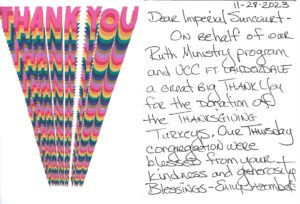 THANK YOU
11-28-2023
Dear Imperial Suncourt-
On behalf of our
Ruth Ministry program
and UCC FT. LAUDERDALE
a great Big THANK You
for the donation of
the THANKSGIVING
Turkeys. Our Thursday
congregation were
blessed from your
kindness and generosity
Blessings -